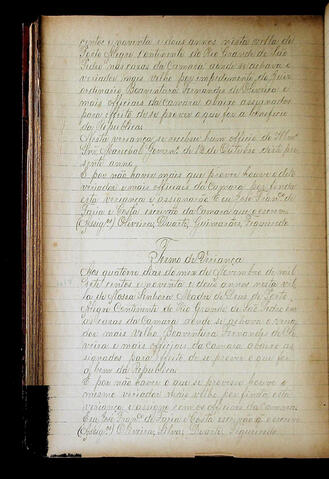 centos e noventa e dous annos nesta villa de
Porto Alegre Continente do Rio Grande de São
Pedro nas cazas da Camara aonde se achava o
vereador mais velho por impedimento do Juiz
ordinario, Boaventura Fernandes de Oliveira e
mais officiaes da Camara abaixo assignados
para effeito de se prover o que for a beneficio
da Republica.
Nesta vereança se recebeu hum officio do Illmo
Snr. General Govern.or de 18 de Outubro deste pre-
sente anno.
E por não haver mais que prover houve o dito
vereador e mais officiaes da Camara por finda
esta vereança e assignarão. E eu José Fran.co de
Faria e Costa escrivão da Camara que o escrevi
(Assig.os) Oliveira, Duarte, Guimarães, Figueiredo
Termo de Vereança
Aos quatorze dias do mez de Novembro de mil
sete centos e noventa e dous annos nesta vil-
la de Nossa Senhora Madre de Deus de Porto
Alegre Continente do Rio Grande de São Pedro em
as cazas da Camara aonde se achava o verea-
dor mais velho Boaventura Fernandes de Oli-
veira e mais officiaes da Camara abaixo as-
signados para effeito de se prover o que for
a bem da Republica.
E por não haver o que se provesse houve o
mesmo vereador mais velho por finda esta
vereança e assignou com os officiaes da Camara.
E eu José Fran.co de Faria e Costa escrivão o escrevi
(Assig.os) Oliveira, Silva, Duarte, Figueiredo